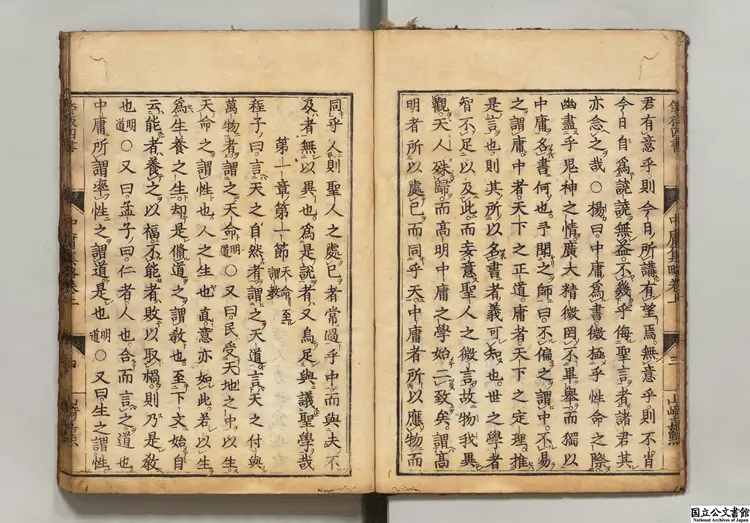 君有意乎則今日所講有望焉無意乎則不肖
今日自爲譊譊無益不幾乎侮聖言者諸君其
亦念之哉○楊曰中庸爲書微極乎性命之際
幽盡乎鬼神之情廣大精微罔不畢擧而獨以
中庸名書何也予聞之師曰不偏之謂中不易
之謂庸中者天下之正道庸者天下之定理推
是言也則其所以名書者義可知也世之學者
智不足以及此而妄意聖人之微言故物我異
觀天人殊歸而高明中庸之學始二致矣謂高
明者所以處己而同乎天中庸者所以應物而
中庸集略卷上
三
山崎嘉點
同乎人則聖人之處己者常過乎中而與夫不
及者無以異也爲是說者又烏足與議聖學哉
第一章第一節 天命至謂敎
程子曰言天之自然者謂之天道言天之付與
萬物者謂之天命 明道 ○又曰民受天地之中以生
天命之謂性也人之生也直意亦如此若以生
爲生養之生却是脩道之謂敎也至下文始自
云能者養之以福不能者敗以取禍則乃是敎
也 明道 ○又曰孟子曰仁者人也合而言之道也
中庸所謂率性之謂道是也 明道 ○又曰生之謂性
四
国立公文書館
National Archives of Japan